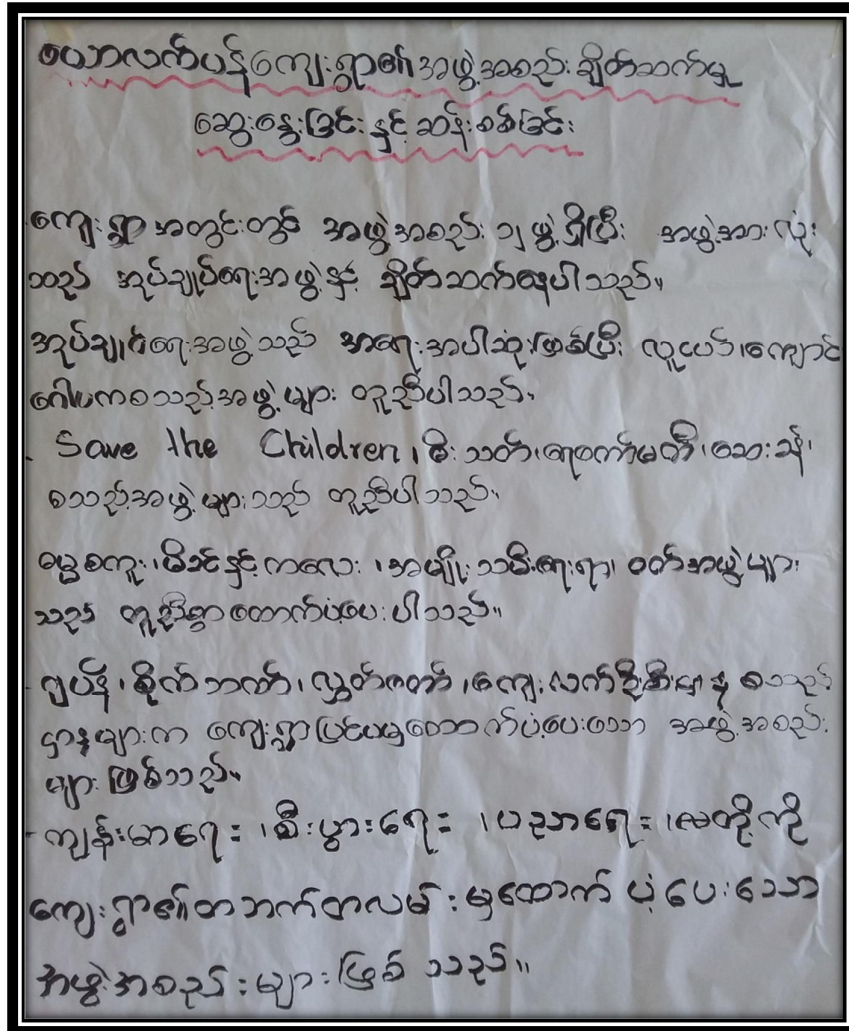 ယောလက်ပန်ကျေးရွာ၏အဖွဲ့အစည်းချိတ်ဆက်မှု
ဆွေးနွေးခြင်းနှင့် ဆန်းစစ်ခြင်း
ကျေးရွာအတွင်းတွင် အဖွဲ့အစည်း ၁၂ ဖွဲ့ရှိပြီး အဖွဲ့အားလုံး
သည် အုပ်ချုပ်ရေးအဖွဲ့နှင့် ချိတ်ဆက်နေပါသည်။
အုပ်ချုပ်ရေးအဖွဲ့သည် အရေးအပါဆုံးဖြစ်ပြီး လူငယ်၊ကျောင်း
ဂေါပကစသည့်အဖွဲ့များ ကူညီပါသည်။
- Save the Children၊ မီးသတ်၊ရေကော်မတီ၊ဆေးခန်း၊
စသည့်အဖွဲ့များသည် ကူညီပါသည်။
ဓမ္မစကူး၊မိခင်နှင့်ကလေး၊အမျိုးသမီးရေးရာ၊ ဝတ်အဖွဲ့များ
သည် ကူညီစွာထောက်ပံ့ပေးပါသည်။
- ဂျပန်၊ စိုက်ဘဏ်၊ လွှတ်တော်၊ကျေးလက်ဦးစီးဌာန စသည့်
ဌာနများက ကျေးရွာပြင်ပမှထောက်ပံ့ပေးသော အဖွဲ့အစည်း
များဖြစ်သည်။
- ကျန်းမာရေး၊စီးပွားရေး၊ပညာရေး၊မေတို့ကို
ကျေးရွာ၏တဘက်တလမ်းမှထောက်ပံ့ပေးသော
အဖွဲ့အစည်းများဖြစ်သည်။